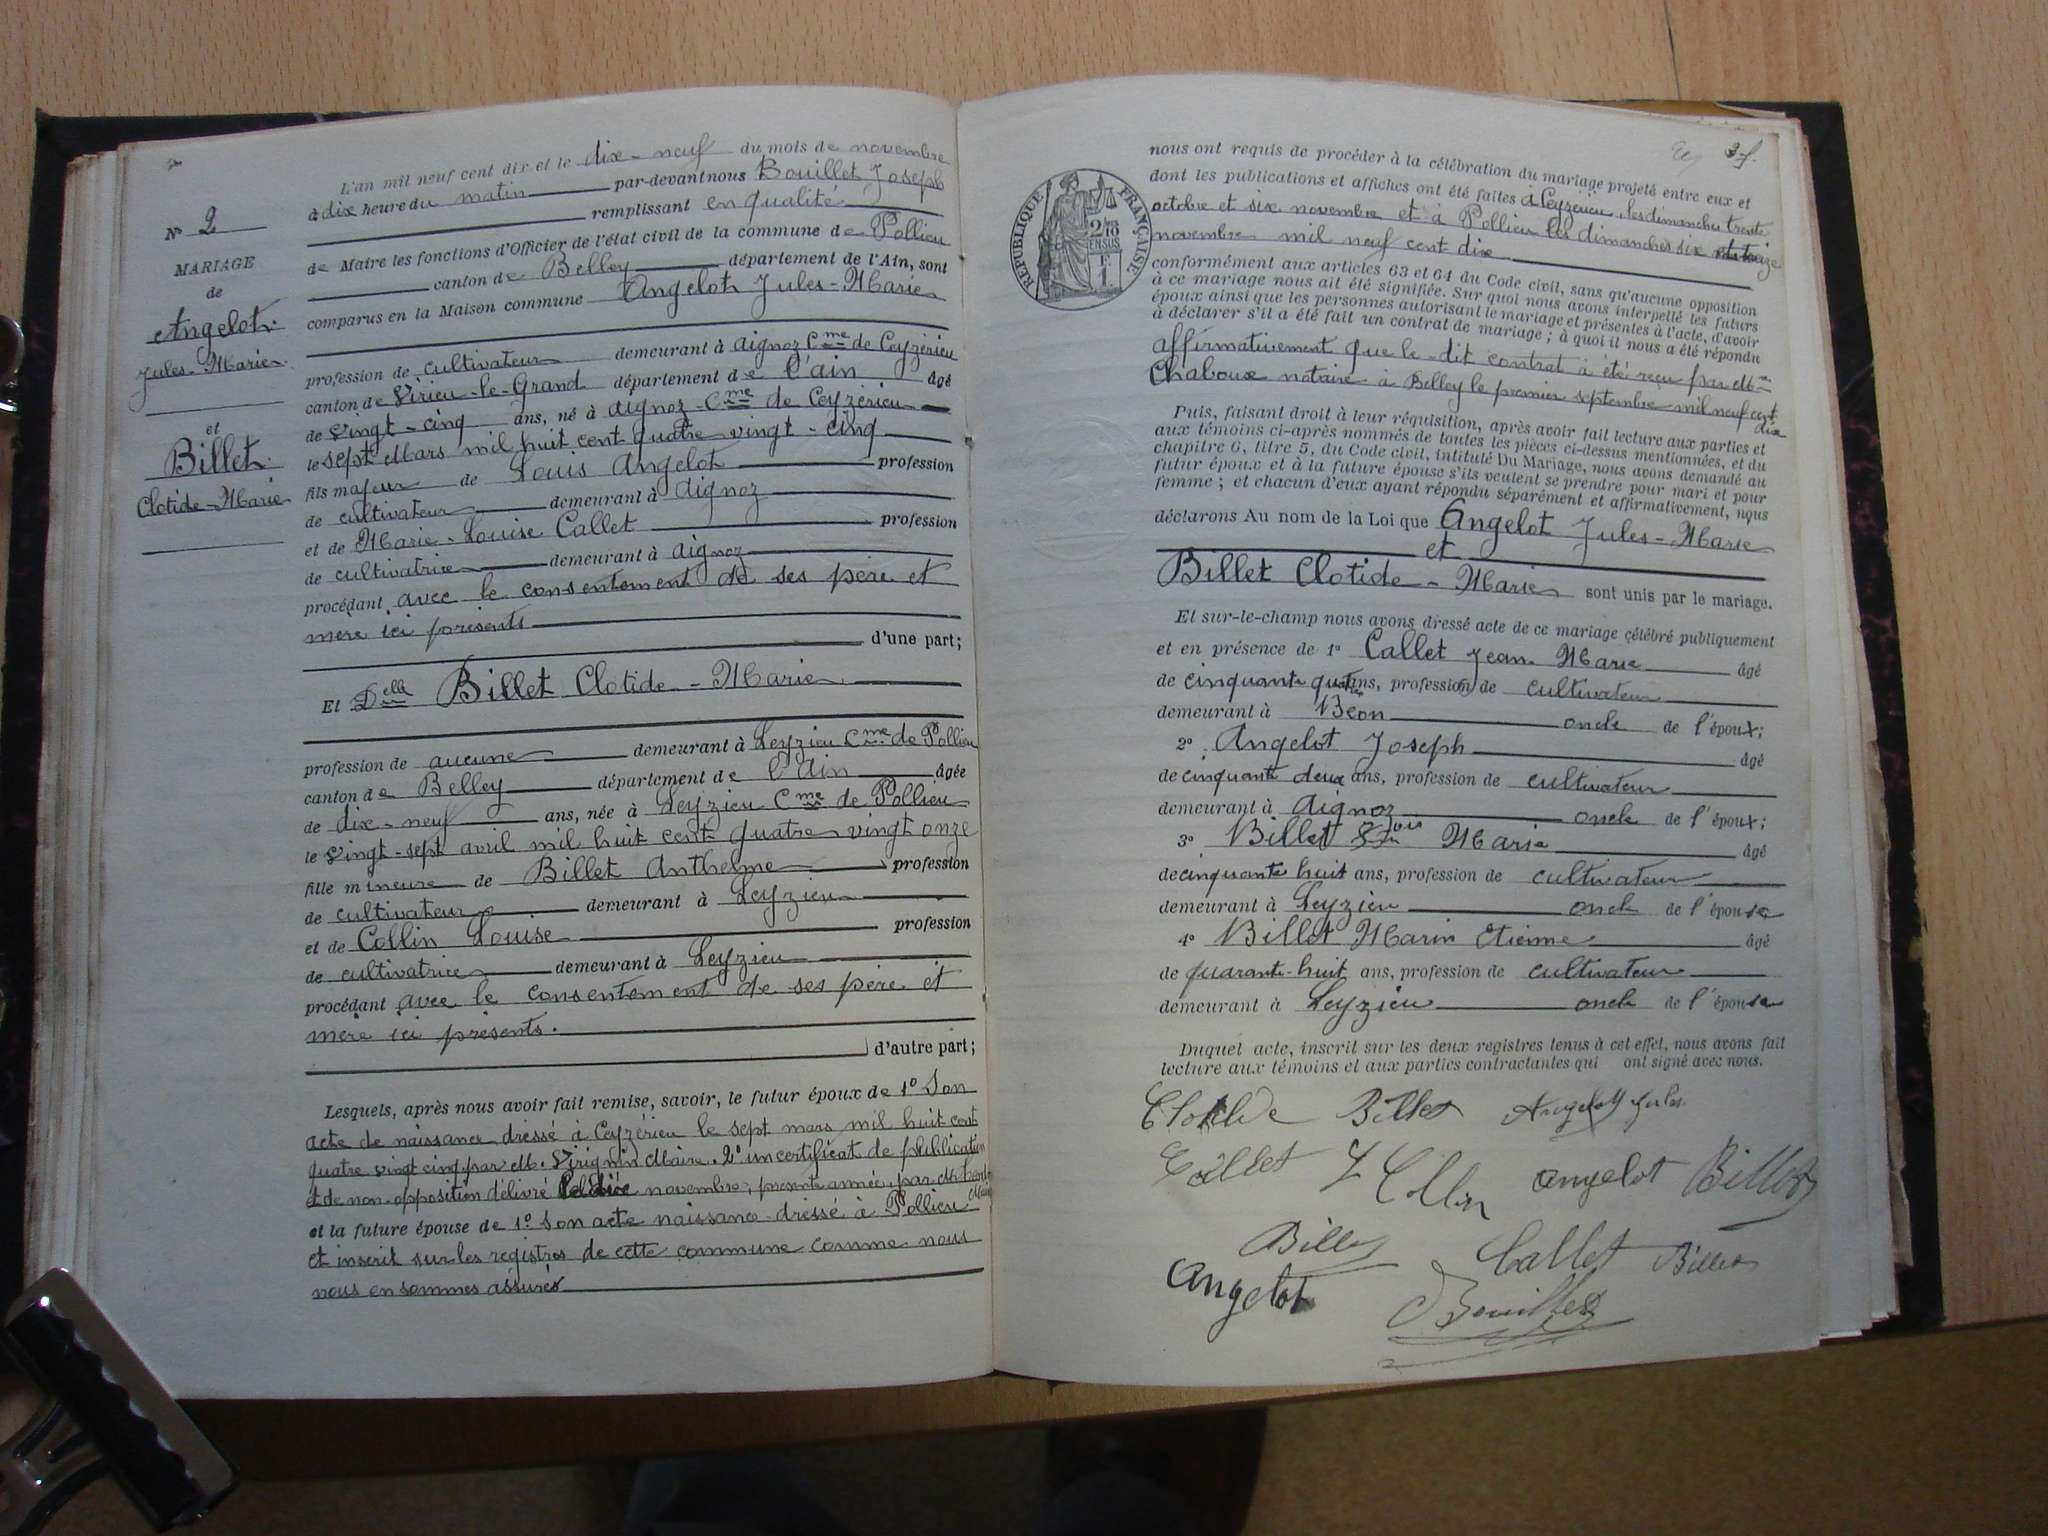 L'an mil neuf cent dix et le dix-neuf du mois de novembre
à dix heure du matin par-devant nous Bouillet Joseph
remplissant en qualité
de Maire les fonctions d'Officier de l'état civil de la commune de Pollieu
canton de Belley département de l'Ain, sont
comparus en la Maison commune Angelot Jules-Marie
profession de cultivateur demeurant à Aignoz Cme de Ceyzérieu
canton de Virieu-le-Grand département de l'ain âgé
de vingt-cinq ans, né à Aignoz-Cme de Ceyzérieu
le sept Mars mil huit cent quatre vingt-cinq
fils majeur de Louis Angelot profession
de cultivateur demeurant à Aignoz
et de Marie-Louise Callet profession
de cultivatrice demeurant à Aignoz
procédant avec le consentement de ses père et
mère ici présents
d'une part;
Et Delle Billet Clotide-Marie
profession de aucune demeurant à Leyzieu Cme de Pollieu
canton de Belley département de l'Ain âgée
de dix-neuf ans, née à Leyzieu Cme de Pollieu
le vingt-sept avril mil huit cent quatre vingt onze
fille mineure de Billet Anthelme profession
de cultivateur demeurant à Leyzieu
et de Collin Louise profession
de cultivatrice demeurant à Leyzieu
procédant avec le consentement de ses père et
mère ici présents.
d'autre part;
Lesquels, après nous avoir fait remise, savoir, le futur époux de 1o Son
acte de naissance dressé à Ceyzérieu le sept mars mil huit cent
quatre vingt cinq par M. Virignin Maire. 2o un certificat de publication
et de non-opposition délivré novembre, présente année, par M.
et la future épouse de 1o Son acte naissance dressé à Pollieu
et inscrit sur les registres de cette commune comme nous
nous en sommes assurés
No 2
MARIAGE
de
Angelot
Jules-Marie
et
Billet
Clotide-Marie
3 f.
RÉPUBLIQUE FRANÇAISE
nous ont requis de procéder à la célébration du mariage projeté entre eux et
dont les publications et affiches ont été faites à Ceyzérieu, les dimanches trente
octobre et six novembre et à Pollieu les dimanches six et treize
novembre mil neuf cent dix
conformément aux articles 63 et 64 du Code civil, sans qu'aucune opposition
à ce mariage nous ait été signifiée. Sur quoi nous avons interpellé les futurs
époux ainsi que les personnes autorisant le mariage et présentes à l'acte, d'avoir
à déclarer s'il a été fait un contrat de mariage; à quoi il nous a été répondu
affirmativement que le dit contrat a été reçu par Me
Chaboux notaire à Belley le premier septembre mil neuf cent
dix
Puis, faisant droit à leur réquisition, après avoir fait lecture aux parties et
aux témoins ci-après nommés de toutes les pièces ci-dessus mentionnées, et du
chapitre 6, titre 5, du Code civil, intitulé Du Mariage, nous avons demandé au
futur époux et à la future épouse s'ils veulent se prendre pour mari et pour
femme; et chacun d'eux ayant répondu séparément et affirmativement, nous
déclarons Au nom de la Loi que Angelot Jules-Marie
et
Billet Clotide-Marie sont unis par le mariage.
Et sur-le-champ nous avons dressé acte de ce mariage célébré publiquement
et en présence de 1o Callet Jean Marie âgé
de cinquante quatre ans, profession de cultivateur
demeurant à Béon oncle de l'époux;
2o Angelot Joseph âgé
de cinquante deux ans, profession de cultivateur
demeurant à Aignoz oncle de l'époux;
3o Billet Marie âgé
de cinquante huit ans, profession de cultivateur
demeurant à Leyzieu oncle de l'épouse
4o Billet Marin Etienne âgé
de quarante-huit ans, profession de cultivateur
demeurant à Leyzieu oncle de l'épouse
Duquel acte, inscrit sur les deux registres tenus à cet effet, nous avons fait
lecture aux témoins et aux parties contractantes qui ont signé avec nous.
Clotilde Billet Angelot Jules
Callet L Collin Angelot Billet
Billet Callet Billet
Angelot J Bouillet